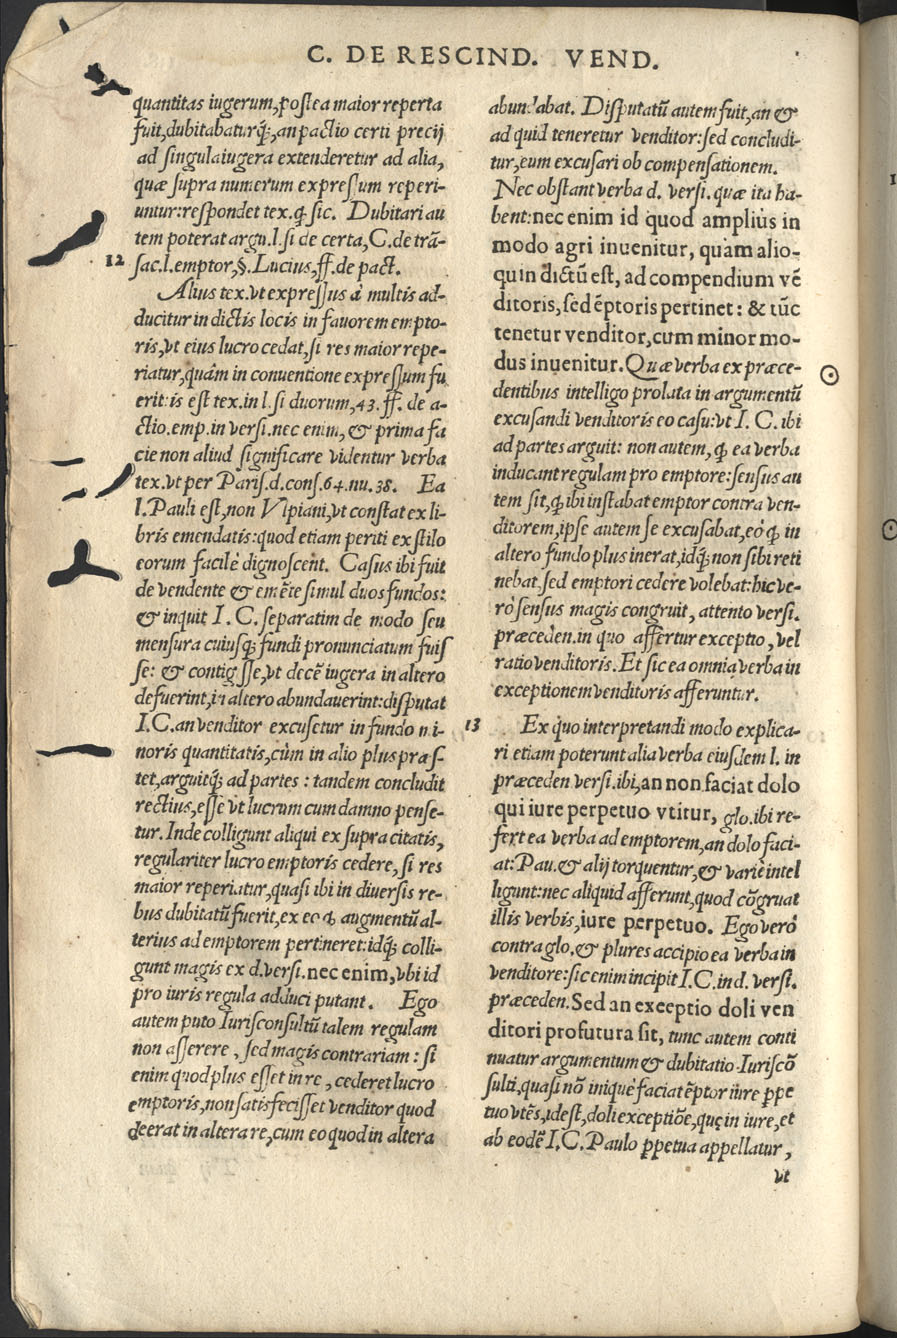 C. DE RESCIND. VEND.
quantitas iugerum, postea maior reperta
fuit, dubitabatur q́;, an pactio certi precij
ad singula iugera extenderetur ad alia,
quæ supra numerum expressum reperi-
untur: respondet tex. ꝙ sic. Dubitari au
tem poterat argu. l. si de certa, C. de trā-
12 sac. l. emptor, §. Lucius, ff. de pact.
Alius tex. vt expressus à multis ad-
ducitur in dictis locis in fauorem empto-
ris, vt eius lucro cedat, si res maior repe-
riatur, quàm in conuentione expressum fu
erit: is est tex. in l. si duorum, 43. ff. de a-
ctio. emp. in versi. nec enim, & prima fa
cie non aliud significare videntur verba
tex. vt per Paris. d. cons. 64. nu. 38. Ea
l. Pauli est, non Vlpiani, vt constat ex li-
bris emendatis: quod etiam periti ex stilo
eorum facilè dignoscent. Casus ibi fuit
de vendente & emēte simul duos fundos:
& inquit I. C. separatim de modo seu
mensura cuiusq́; fundi pronunciatum fuis
se: & contigisse, vt decē iugera in altero
defuerint, in altero abundauerint: disputat
I. C. an venditor excusetur in fundo mi-
noris quantitatis, cùm in alio plus præs-
tet, arguitq́; ad partes: tandem concludit
rectius, esse vt lucrum cum damno pense-
tur. Inde colligunt aliqui ex supra citatis,
regulariter lucro emptoris cedere, si res
maior reperiatur, quasi ibi in diuersis re-
bus dubitatū fuerit, ex eo ꝙ augmentū al-
terius ad emptorem pertineret: idq́; colli-
gunt magis ex d. versi. nec enim, vbi id
pro iuris regula adduci putant. Ego
autem puto Iurisconsultū talem regulam
non asserere, sed magis contrariam: si
enim quod plus esset in re, cederet lucro
emptoris, non satisfecisset venditor quod
deerat in altera re, cum eo quod in altera
abundabat. Disputatū autem fuit, an &
ad quid teneretur venditor: sed concludi-
tur, eum excusari ob compensationem.
Nec obstant verba d. versi. quæ ita ha-
bent: nec enim id quod ampliùs in
modo agri inuenitur, quàm alio-
quin dictū est, ad compendium vē
ditoris, sed ēptoris pertinet: & tūc
tenetur venditor, cum minor mo-
dus inuenitur. Quæ verba ex præce-
dentibus intelligo prolata in argumentū
excusandi venditoris eo casu: vt I. C. ibi
ad partes arguit: non autem, ꝙ ea verba
inducant regulam pro emptore: sensus au
tem sit, ꝙ ibi instabat emptor contra ven-
ditorem, ipse autem se excusabat, eò ꝙ in
altero fundo plus inerat, idq́; non sibi reti
nebat, sed emptori cedere volebat: hic ve-
rò sensus magis congruit, attento versi.
præceden. in quo affertur exceptio, vel
ratio venditoris. Et sic ea omnia verba in
exceptionem venditoris afferuntur.
13 Ex quo interpretandi modo explica-
ri etiam poterunt alia verba eiusdem l. in
præceden versi. ibi, an non faciat dolo
qui iure perpetuo vtitur, glo. ibi re-
fert ea verba ad emptorem, an dolo faci-
at: Pau. & alij torquentur, & variè intel
ligunt: nec aliquid afferunt, quod cōgruat
illis verbis, iure perpetuo. Ego verò
contra glo. & plures accipio ea verba in
venditore: sic enim incipit I. C. in d. versi.
præceden. Sed an exceptio doli ven
ditori profutura sit, tunc autem conti
nuatur argumentum & dubitatio Iuriscō
sulti, quasi nō iniquè faciat ēptor iure ꝑpe
tuo vtēs, idest, doli exceptiōe, quę in iure, et
ab eodē I. C. Paulo ꝑpetua appellatur,
vt